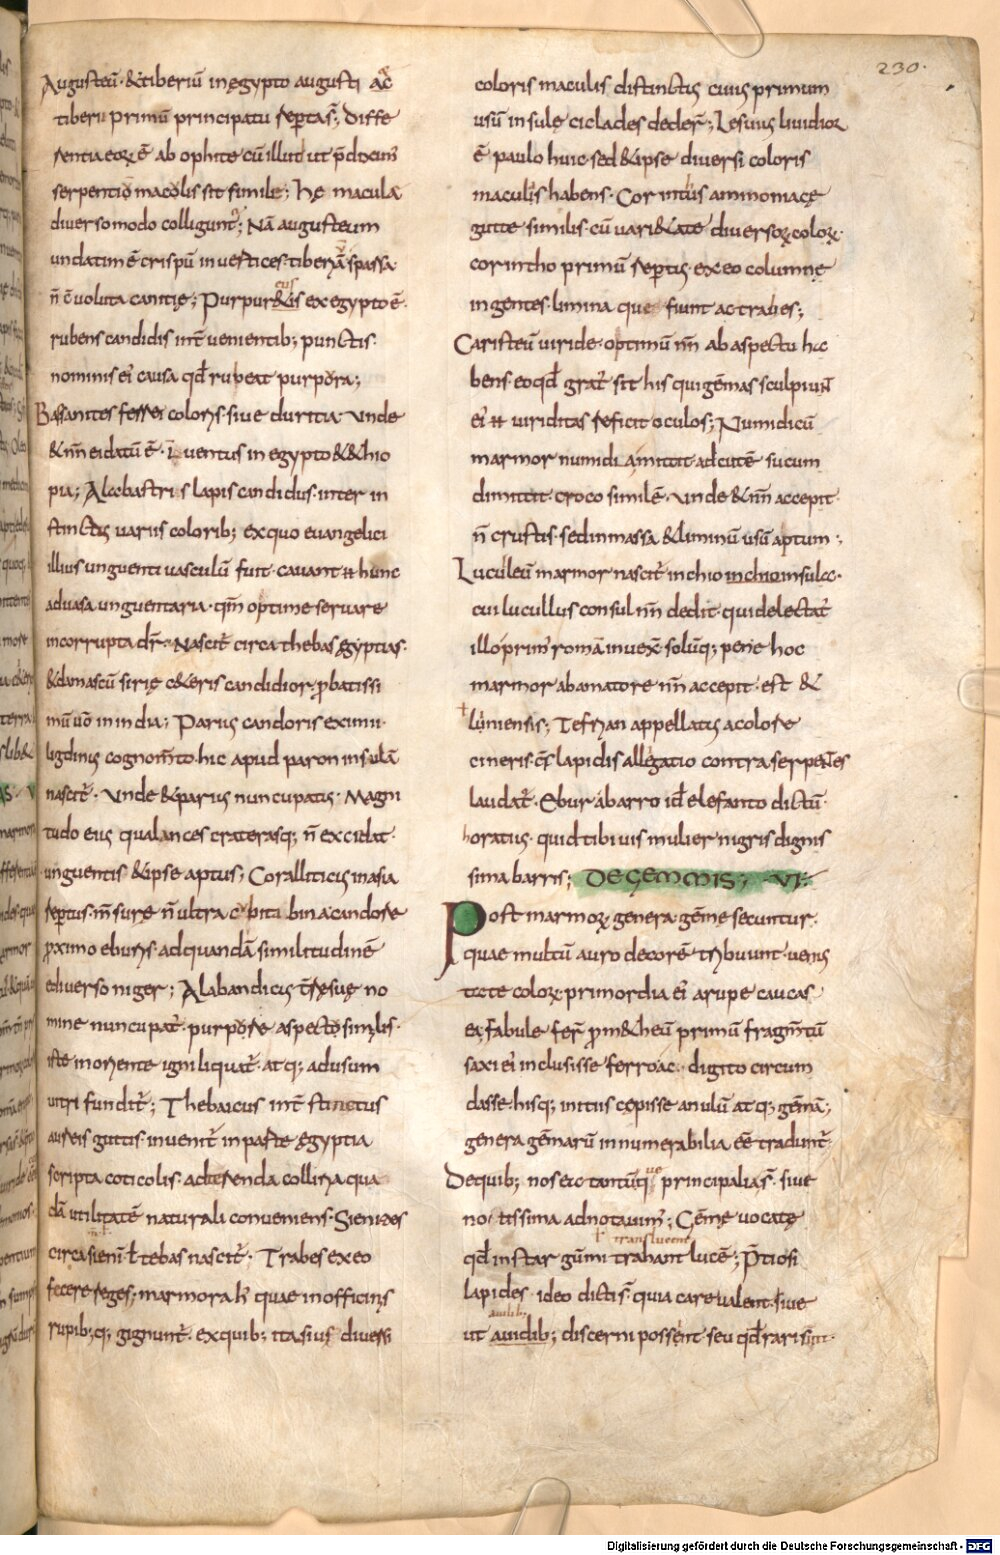 Augusteū · & tiberiū in ęgypto augusti ac
tiberii primū principatu reꝑtas̄; Diffe
rentia eoꝝ ē ab ophite cū illud ut p̄diximꝰ
serpentiū macolis sit simile; Hę maculas
diverso modo colligunt; Nā augusteum
undatim ē crispū in vertices · tiberiā spassa
n̄ c̄voluta canitię; Purpur&is ex egypto ē ·
rubens candidis int̄ venientib; punctis ·
nominis ei causa qđ rubeat purpora;
Bassanites ferrei coloris · sive duritia · unde
& nn̄ ei datū ē · Inventus in egypto & &hio
pia; Alabastri s lapis candidus · inter in
stinctus variis colorib; ex quo evangelici
illius unguenti vasculū fuit · cavant & hunc
ad vasa unguentaria · qm̄ optime servare
incorrupta dr̄ · Nascit̄ circa thebas ęgyptias ·
& damascū sirię c&eris candidior · ꝓbatissi
mū ūo in india; Parius candoris eximii ·
ligdinus cognom̄to · hic apud paron insulā
nascit̄ · unde & parius nuncupatus · Magni
tudo eius qua lances craterasq; n̄ excidat ·
unguentis & ipse aptus; Coralliticus in asia
reꝑtus · m̄surę n̄ ultra cubita bina · candore
ꝓximo eboris · ad quandā similitudinē
e diverso niger; Alabandicus t̄rę suę no
mine nuncupat̄ · purpore aspectū similis ·
iste in oriente igni liquat̄ · atq; ad usum
vitri fundit̄; Thebaicus int̄stinctus
aureis guttis · invenit̄ in parte ęgyptia
scripta coticolis · ad terenda colliria qua
dā utilitatē naturali conveniens · Sienites
circa sienī ł tebas nascit̄; Trabes ex eo
fecere reges; marmora h̄ quae in officinis
rupib; q; gignunt̄ · ex quib; ita sius diversi
230 ·
coloris maculis distinctus cuius primum
usū insulę ciclades deder̄; Lesuius lividior
ē paulo huic sed & ipse diversi coloris
maculis habens · Corintius ammoniacę
gutte similis · cū vari&ate diversoꝝ coloꝝ ·
corintho primū reꝑtus · ex eo columnę
ingentes · limina que fiunt ac trabes;
Caristeū viride · optimū nn̄ ab aspectu ha
bens eo qđ grat̄ sit his qui gēmas sculpiun̄
ei & viriditas reficit oculos; Numidicū
marmor numidi a mittit · ad cutē sucum
dimittit · croco similē · unde & nn̄ accepit ·
n̄ crustis · sed in massa & liminū usū aptum;
Luculeū marmor nascit̄ in chio in chio insula ·
cui lucullus consul nn̄ dedit · qui delectat̄
illo primꝰ romā invex̄ · solūq; pene hoc
marmor ab amatore nn̄ accepit · est &
luniensis; Tefrian appellatus a colore
cineris · c̄ꝰ lapidis allegatio contra serpentes
laudat̄ · Ebur a barro id̄ elefanto dictū ·
horatius · quid tibi vis mulier nigris dignis
sima barris; DE GEMMIS; VI ·
Post marmoꝝ genera gēme secuntur ·
quae multū auro decorē tribuunt · venus
tate coloꝝ · primordia ei a rupe caucas
ea · fabule fer̄ ꝓm&heū primū fragm̄tū
saxi ei inclusisse ferro ac · digito circum
dasse · hisq; initiis cępisse anulū atq; gēmā;
genera gēmarū innumerabilia eē tradunt̄ ·
De quib; nos eic tantūq̄ principalia s̄ · sive
notissima adnotavim̄; Gēme vocatę
qđ instar gūmi trahant lucē; P̄tiosi
lapides · ideo dictis · quia care valent · sive
ut avidib; discerni possent · seu qđ rari sint ·
Digitalisierung gefördert durch die Deutsche Forschungsgemeinschaft - DFG